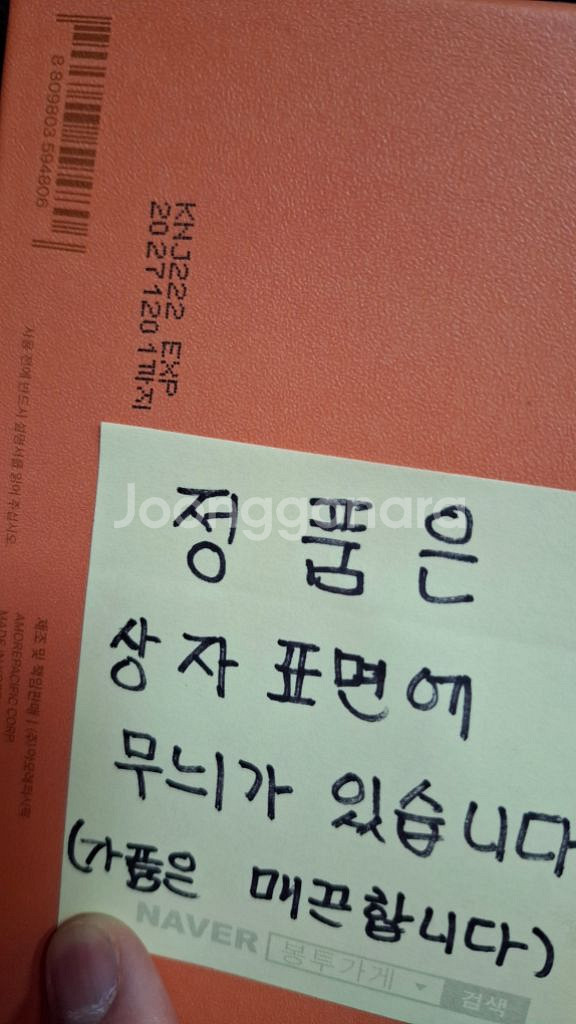 8 809803 594806
KNJ222 EXP
20271201까지
사용 전에 반드시 설명서를 읽어 주십시오.
제조 및 책임판매 | (주)아모레퍼시픽
AMOREPACIFIC CORP.
Joonggonara
정품은
상자 표면에
무늬가 있습니다
(가품은 매끈합니다)
NAVER 봉투가게 검색